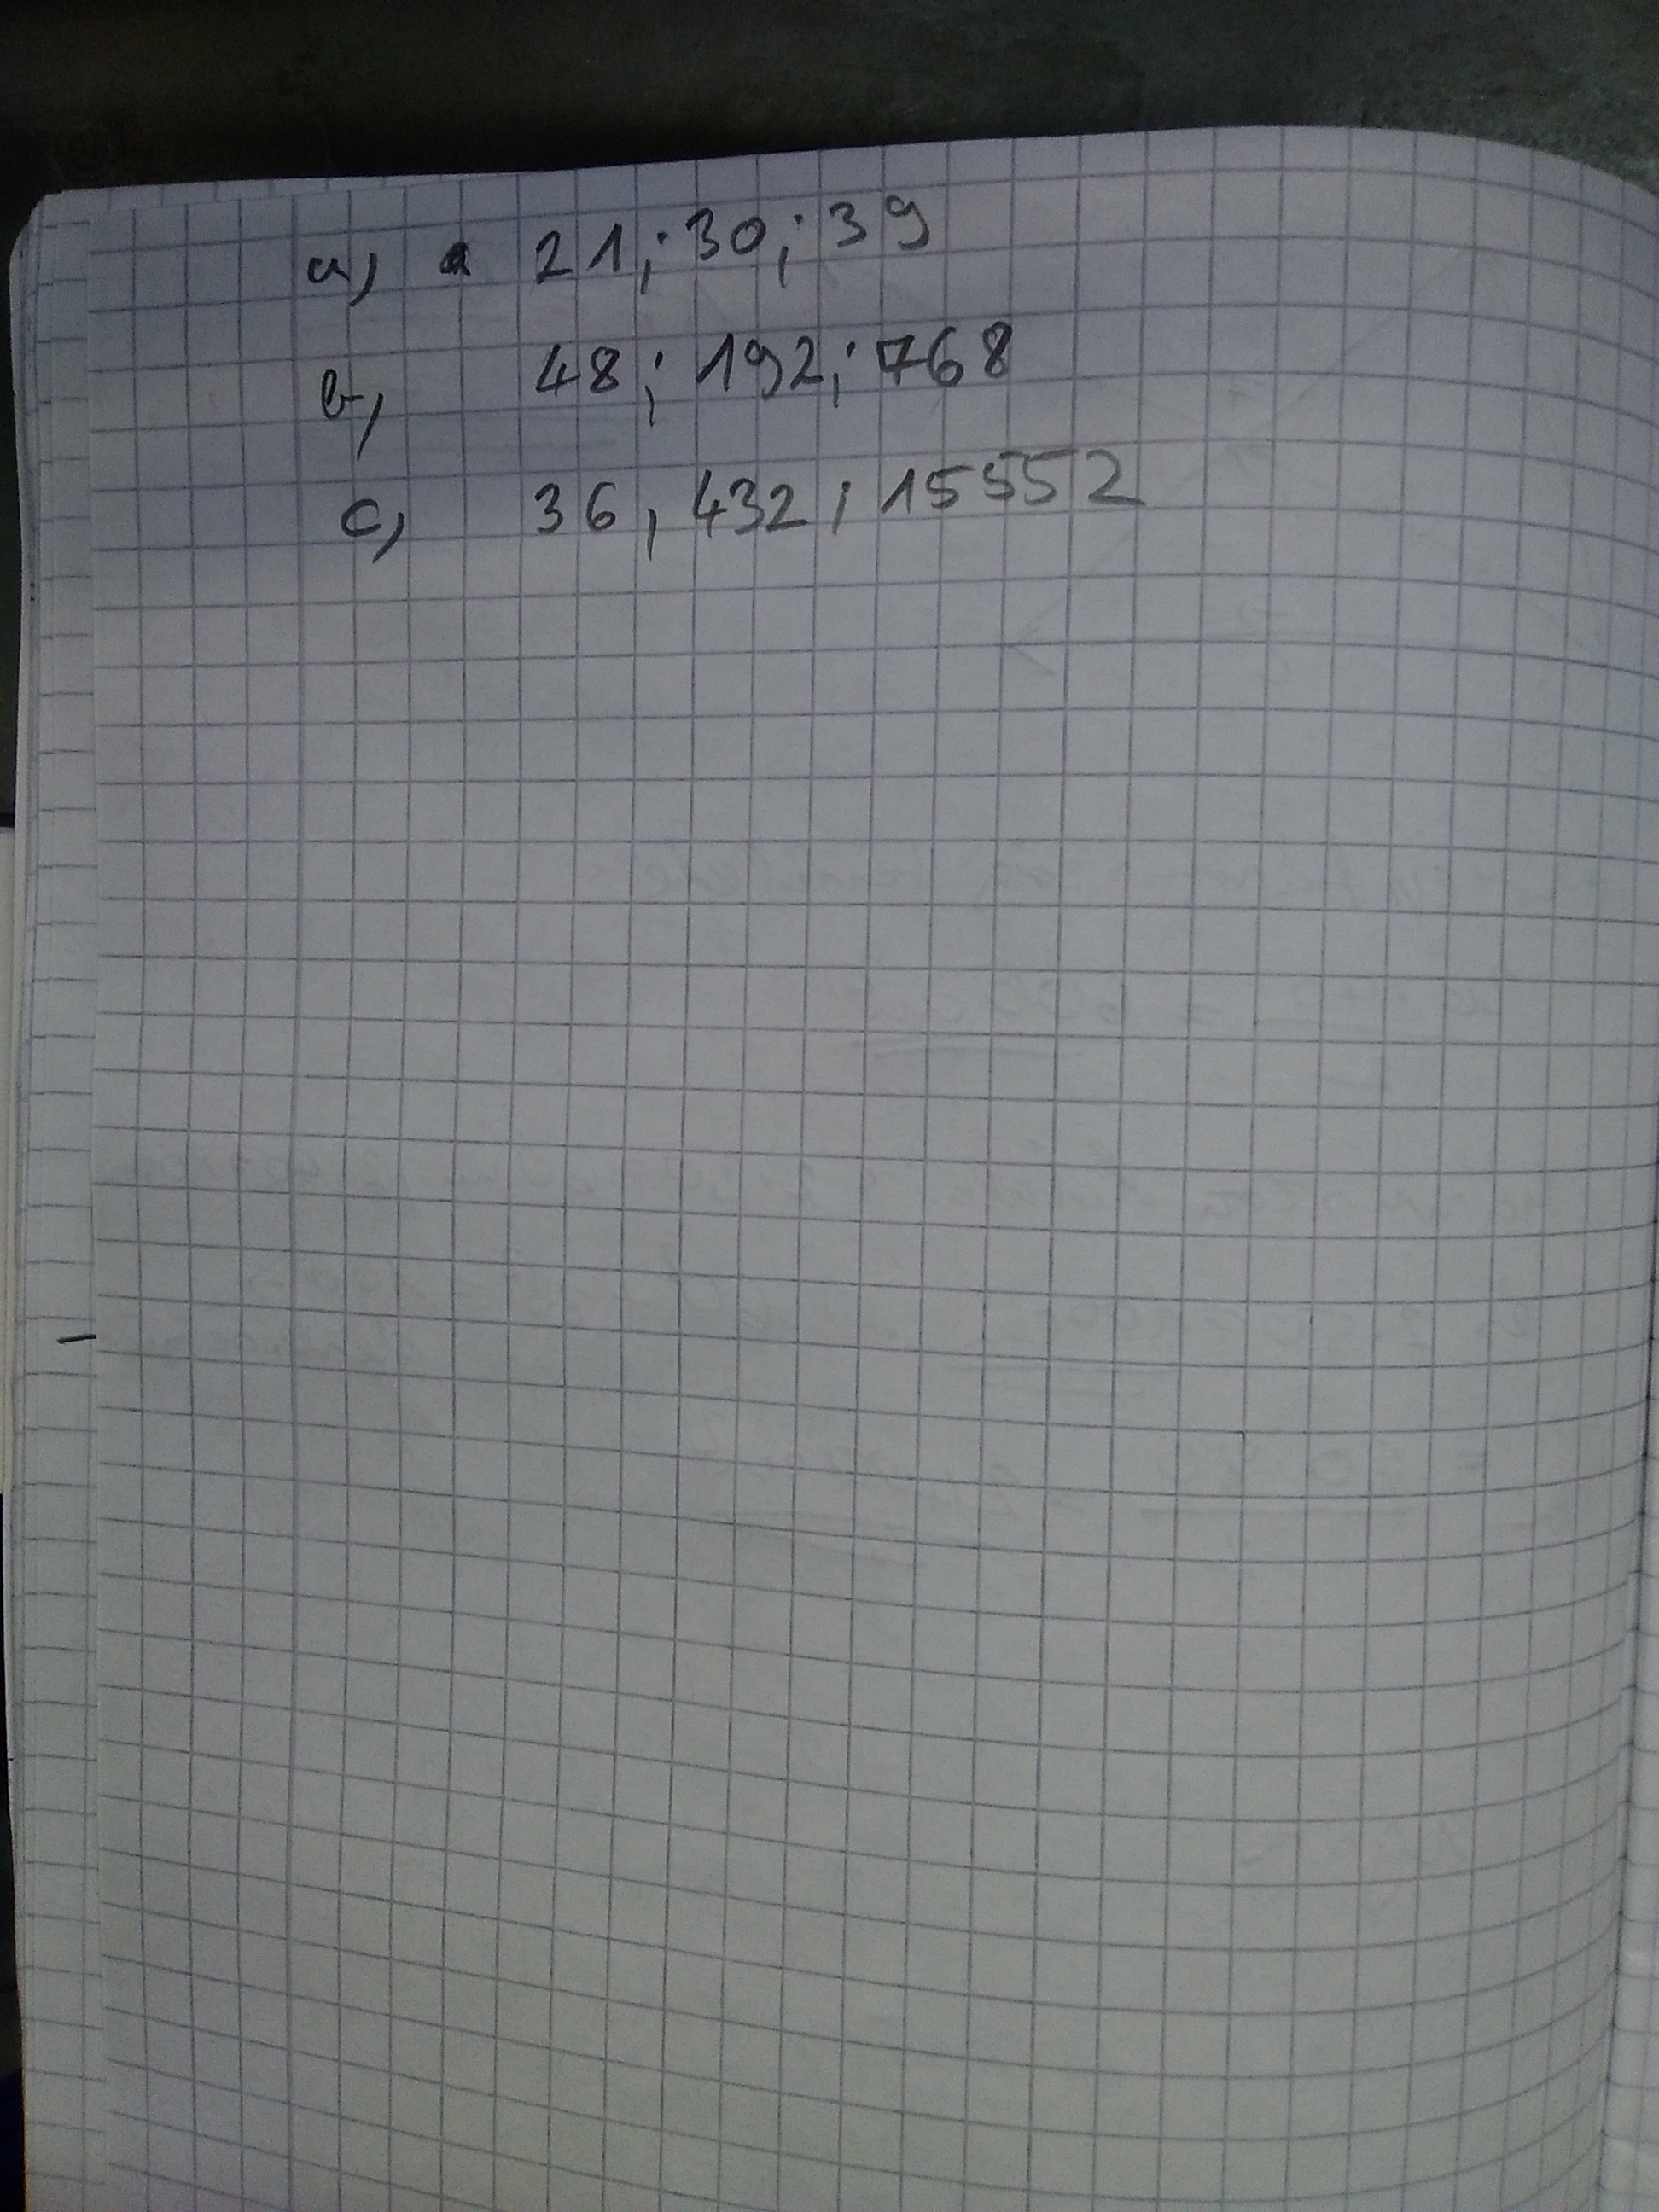 a, 21; 30; 39
b, 48; 192; 768
c, 36, 432; 15552